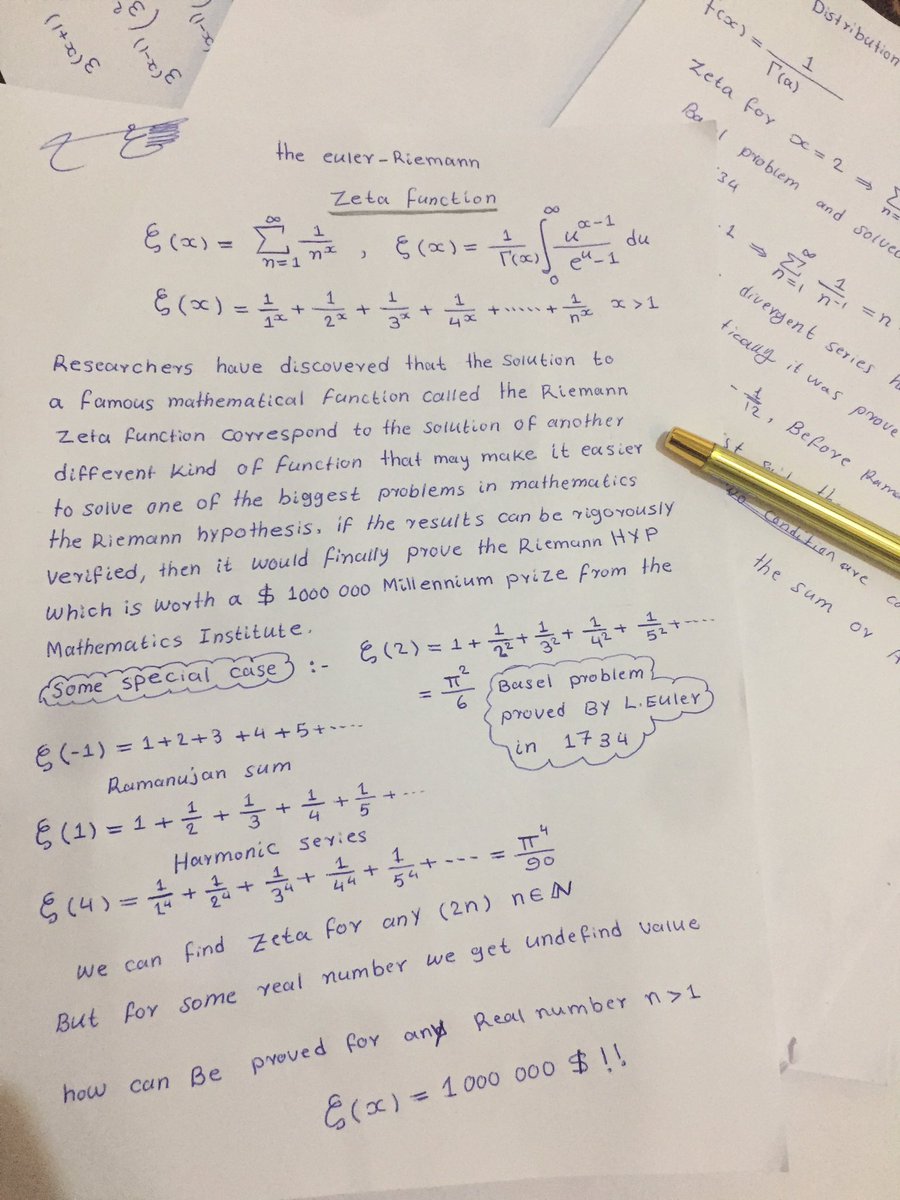 the euler-Riemann
Zeta function
ξ(x) = ∑_{n=1}^{∞} 1/n^x , ξ(x) = 1/Γ(x) ∫_0^∞ u^{x-1}/(e^u-1) du
ξ(x) = 1/1^x + 1/2^x + 1/3^x + 1/4^x + ...... + 1/n^x x>1
Researchers have discovered that the solution to
a famous mathematical function called the Riemann
Zeta function correspond to the solution of another
different kind of function that may make it easier
to solve one of the biggest problems in mathematics
the Riemann hypothesis, if the results can be rigorously
verified, then it would finally prove the Riemann HYP
which is worth a $ 1000 000 Millennium prize from the
Mathematics Institute.
Some special case :-
ξ(2) = 1 + 1/2^2 + 1/3^2 + 1/4^2 + 1/5^2 + ....
= π^2/6
Basel problem
proved BY L.Euler
in 1734
ξ(-1) = 1+2+3+4+5+....
Ramanujan sum
ξ(1) = 1 + 1/2 + 1/3 + 1/4 + 1/5 + ...
Harmonic series
ξ(4) = 1/1^4 + 1/2^4 + 1/3^4 + 1/4^4 + 1/5^4 + --- = π^4/90
we can find Zeta for any (2n) n∈ℕ
But for some real number we get undefind value
how can Be proved for any Real number n>1
ξ(x) = 1000 000 $ !!
3(x+1)
3(x-1)
(x-1)
Distribution
f(x) = 1/Γ(a)
Zeta for x = 2 ⇒ ∑
problem and solved
34
1 ⇒ ∑_{n=1}^{∞} 1/n^{-1} = n
divergent series
it was prove
-1/12, Before
condition are
the sum or